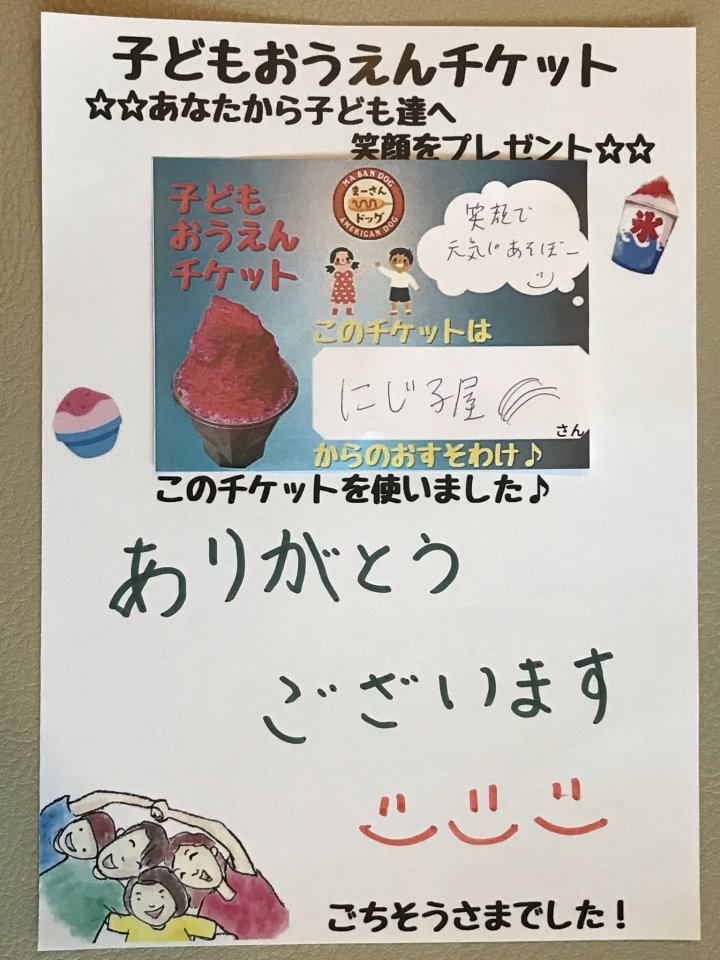 子どもおうえんチケット
☆☆あなたから子ども達へ
笑顔をプレゼント☆☆
子ども
おうえん
チケット
MA SAN DOG
まーさん
ドッグ
AMERICAN DOG
笑顔で
元気にあそぼー
氷
このチケットは
にじ子屋
さん
からのおすそわけ♪
このチケットを使いました♪
ありがとう
ございます
ごちそうさまでした！